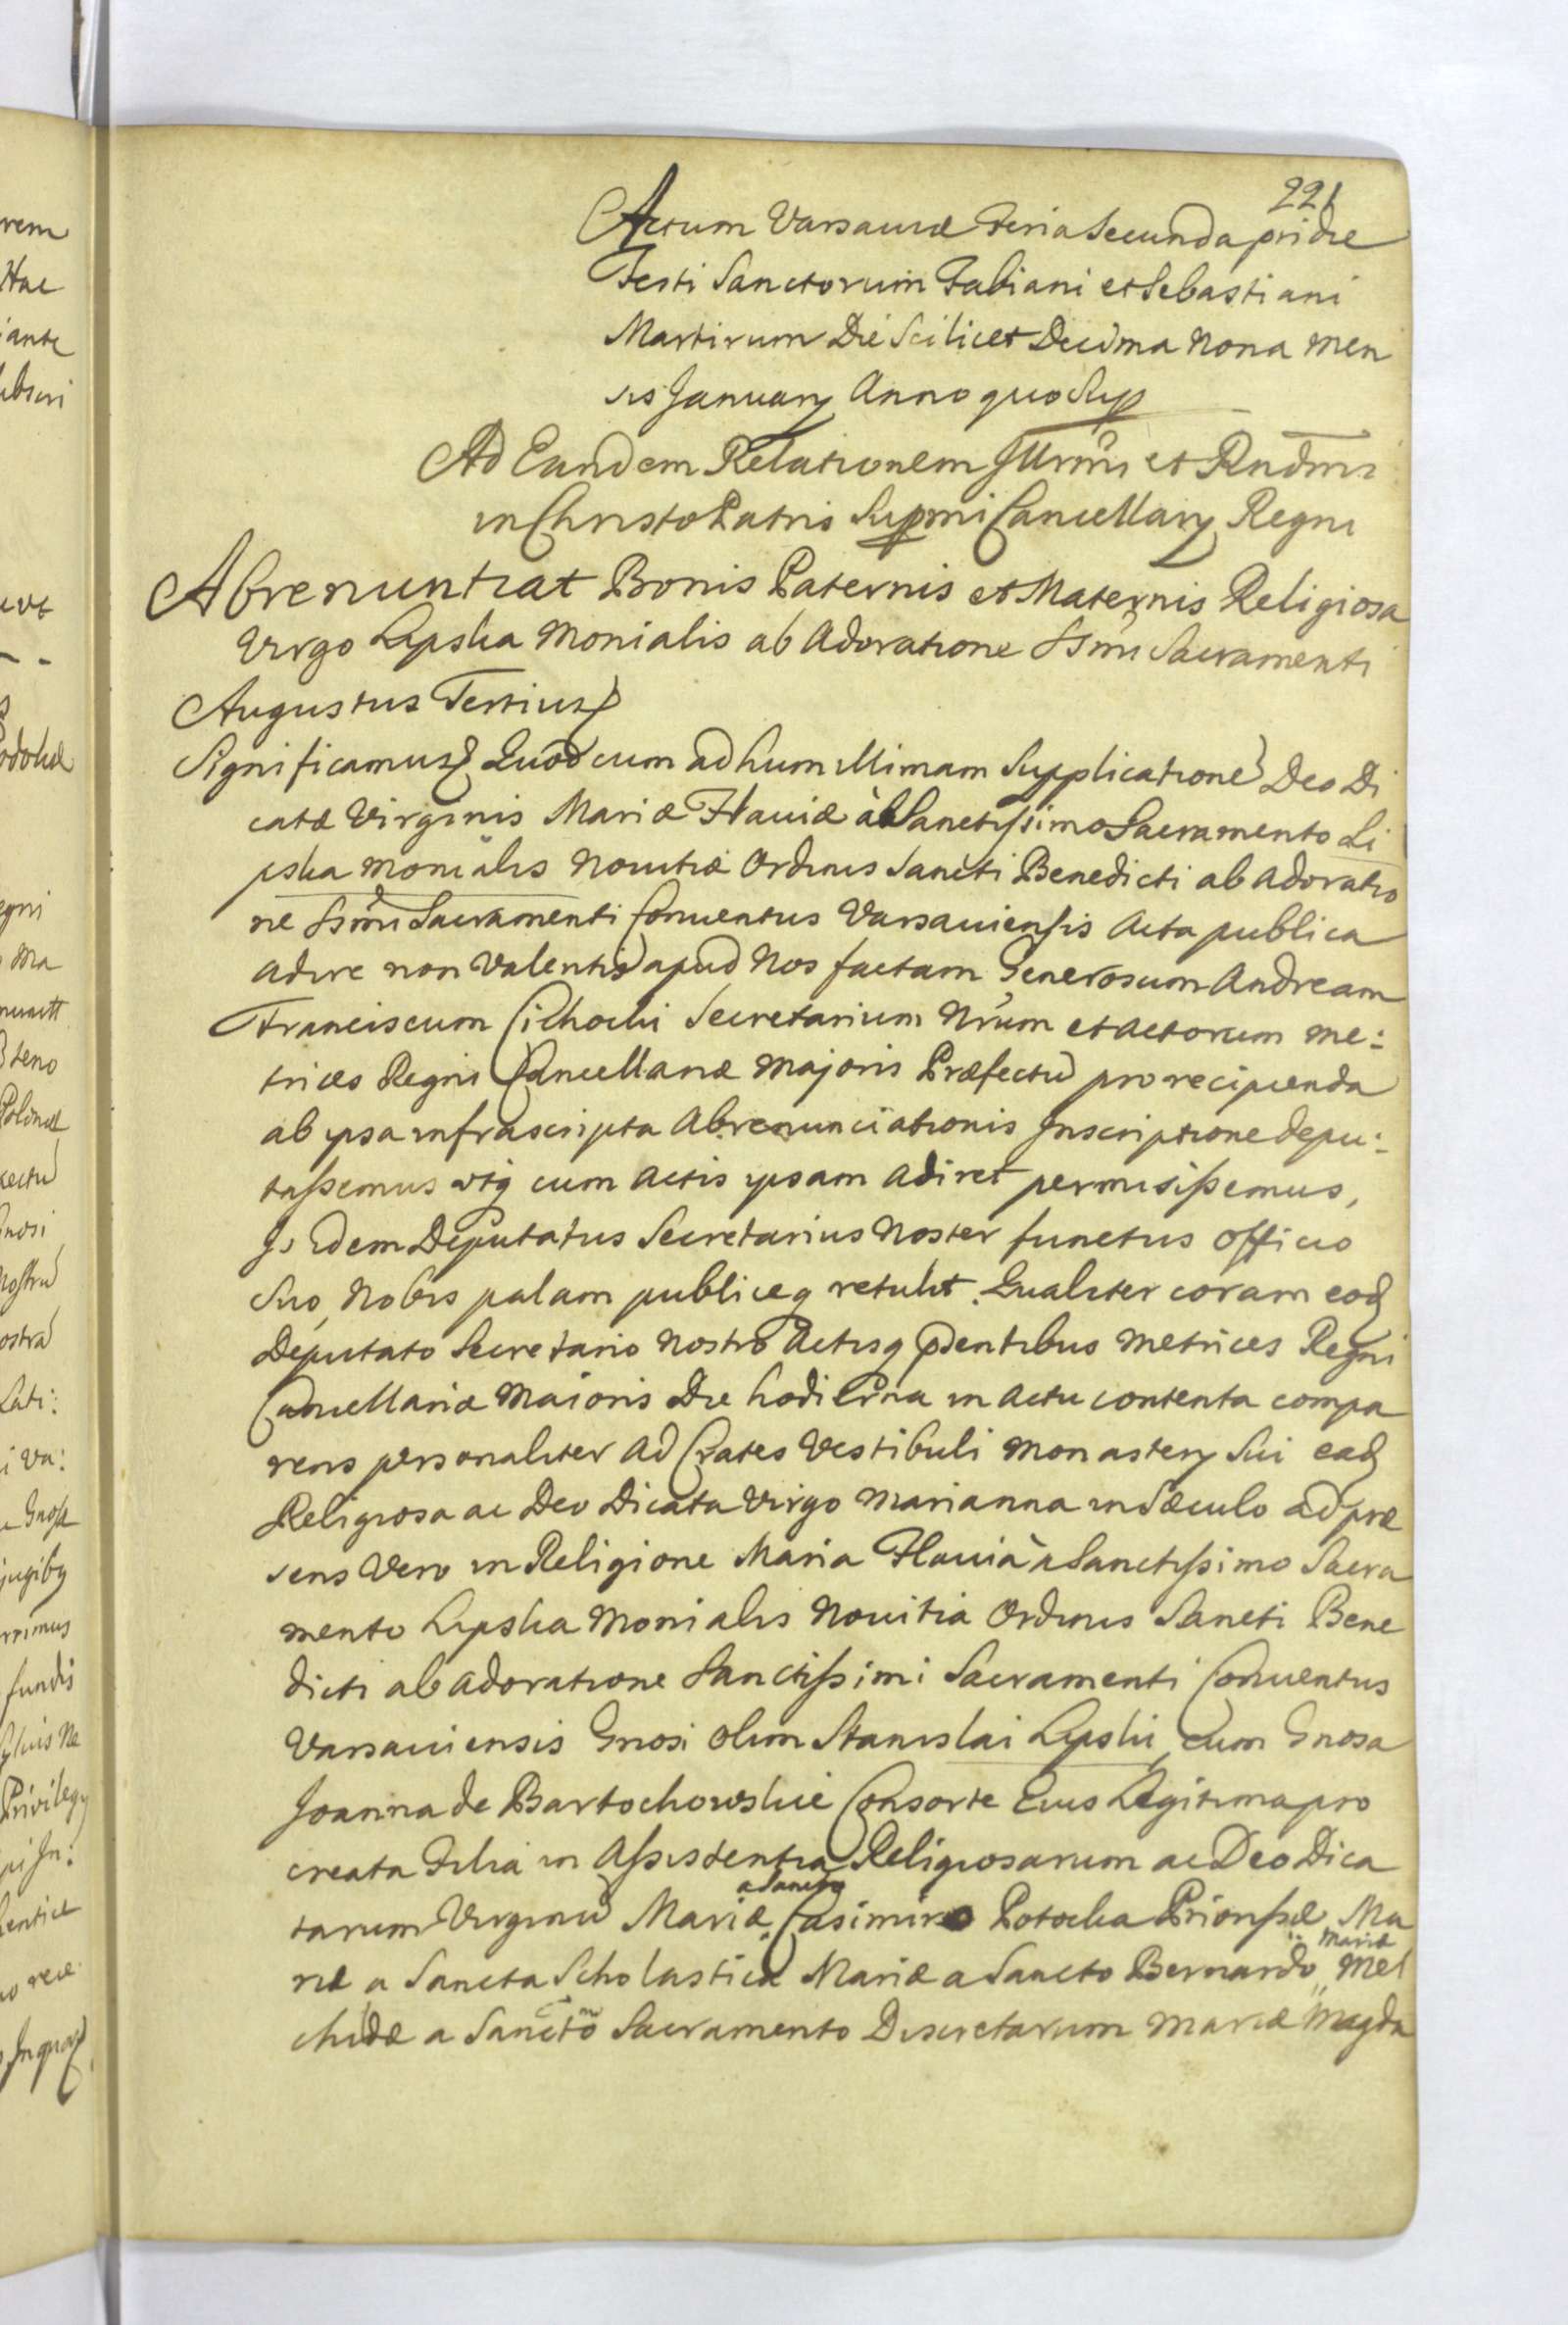 221
Actum Varsaviæ Feria Secunda pridie
Festi Sanctorum Fabiani et Sebastiani
Martirum Die Scilicet Decima Nona Men
sis January Anno quo Sup
Ad Eandem Relationem Illrmi et Rndmi
in Christo Patris Supmi Cancellary Regni
Abrenuntiat Bonis Paternis et Maternis Religiosa
Virgo Lipska Monialis ab Adoratione SSmi Sacramenti
Augustus Tertius
Significamus Quod cum ad humillimam Supplicatione Deo Di
catæ Virginis Mariæ Flaviæ à Sanctissimo Sacramento Li
pska monialis Novitiæ Ordinis Sancti Benedicti ab Adoratio
ne SSmi Sacramenti Conventus Varsaviensis Acta publica
adire non Valentis apud Nos factam Generosum Andream
Franciscum Cichocki Secretarium Nrum et Actorum Me:
trices Regni Cancellariæ Majoris Præfectu pro recipienda
ab ipsa infrascripta Abrenunciationis Inscriptione depu:
tassemus utq cum Actis ipsam adiret permisissemus,
Is idem Deputatus Secretarius Noster functus officio
Suo, Nobis palam publiceq retulit. Qualiter coram eod
Deputato Secretario Nostro Actisq pʃentibus Metrices Regni
Cancellariæ Maioris Die hodierna in Actu contenta compa
rens personaliter Ad Crates Vestibuli Monastery Sui ead
Religiosa ac Deo Dicata Virgo Marianna in Sæculo ad præ
sens Vero in Religione Maria Flavia à Sanctissimo Sacra
mento Lipska Monialis Novitia Ordinis Sancti Bene
dicti ab Adoratione Sanctissimi Sacramenti Conventus
Varsaviensis Gnosi olim Stanislai Lipski, cum Gnosa
Joanna de Bartochowskie Consorte Eius Legitima pro
creata Filia in Assistentia Religiosarum ac Deo Dica
tarum Virginu Mariæ a Sancto Casimiro Potocka Priorissæ Ma
riæ a Sancta Scholastica Mariæ a Sancto Bernardo Mariæ Mel
childæ a Sancto Sacramento Discretarum Mariæ Magda